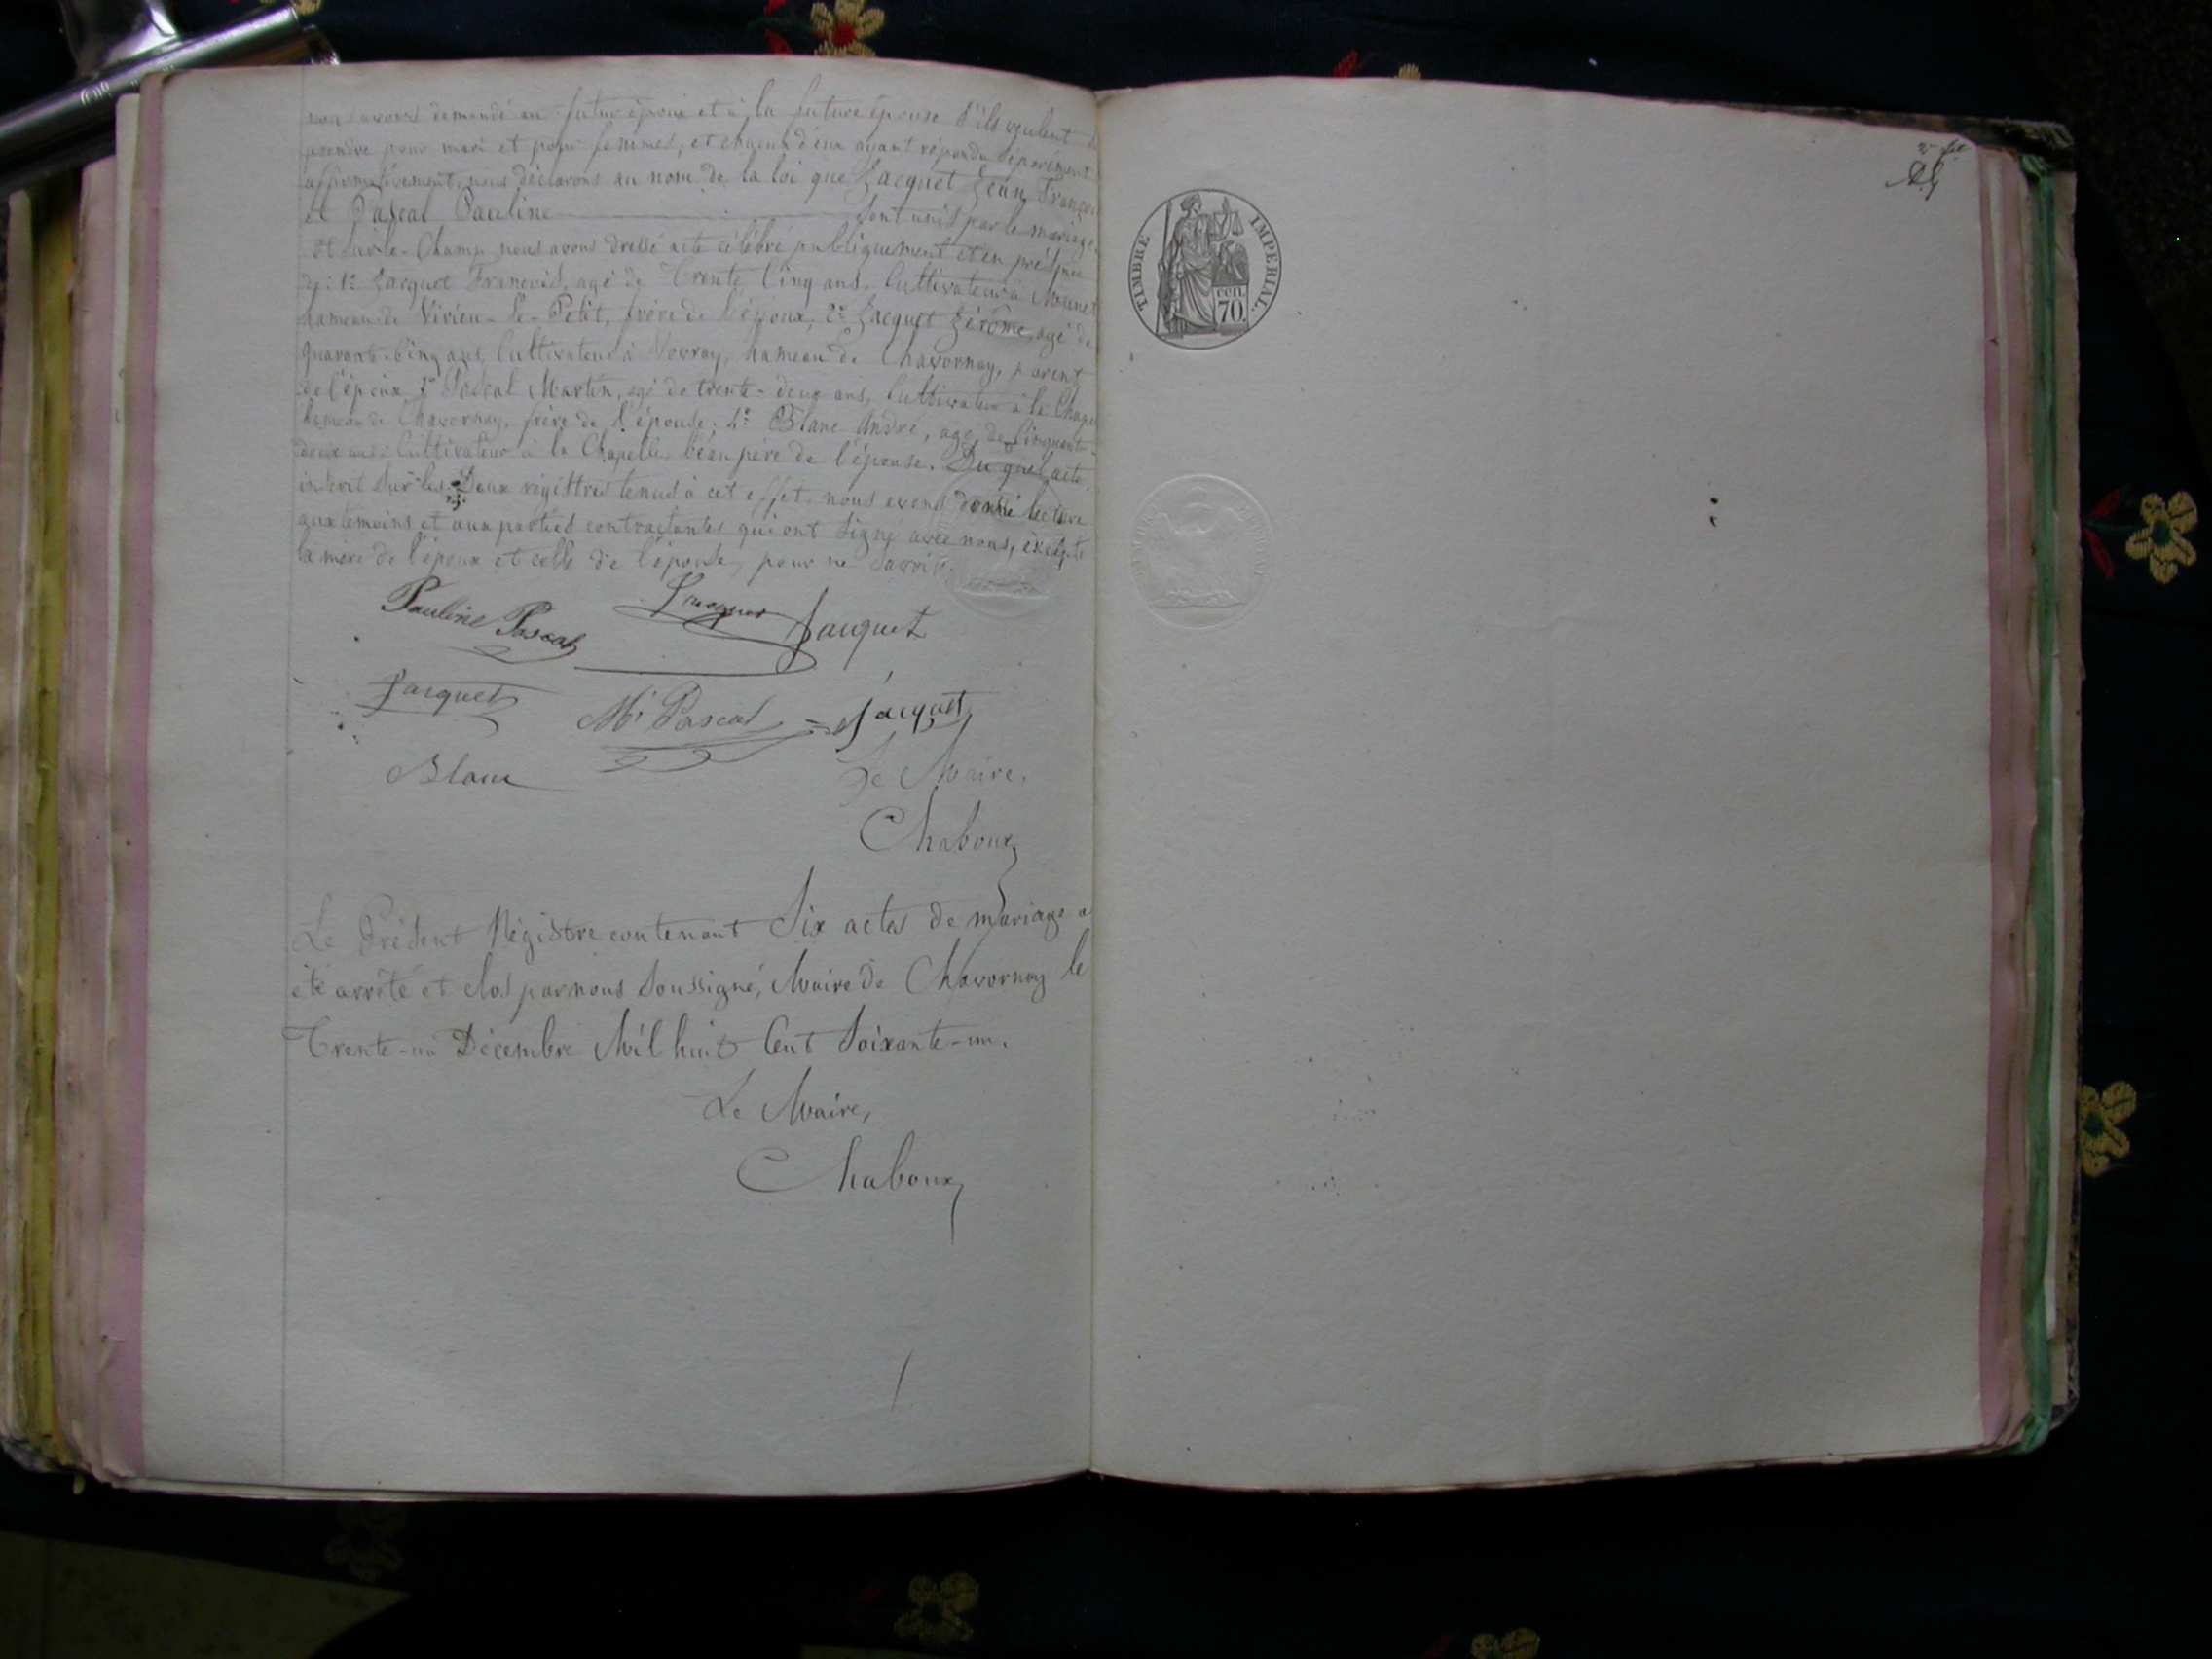 nous avons demandé au futur époux et à la future épouse s'ils veulent se
prendre pour mari et pour femmes, et chacun d'eux ayant répondu séparément
affirmativement, nous déclarons au nom de la loi que Jacquet Jean François
et Pascal Pauline sont unis par le mariage
et sur-le-Champ nous avons dressé acte célébré publiquement et en présence
de: 1° Jacquet François, agé de Trente Cinq ans, Cultivateur à
hameau de Virieu-le-Petit, frère de l'époux, 2° Jacquet Jérôme, agé de
quarante-Cinq ans, Cultivateur à Vovray, hameau de Chavornay, parent
de l'époux, 3° Pascal Martin, agé de trente-deux ans, Cultivateur à la Chapelle
hameau de Chavornay, frère de l'épouse; 4° Blanc André, agé de Cinquante
deux ans Cultivateur à la Chapelle, béau père de l'épouse. Du quel acte
inscrit sur les Deux registres tenus à cet effet, nous avons donné lecture
aux temoins et aux parties contractantes qui ont signé avec nous, excepté
la mère de l'époux et celle de l'épouse, pour ne savoir.
Pauline Pascal Jacquet Jacquet
Jacquet Mi Pascal Jacquet
Blanc Le Maire,
Chaboux
Le Présent Régistre contenant Six actes de mariage a
été arrêté et clos par nous soussigné, Maire de Chavornay le
Trente-un Décembre Mil huit Cent Soixante-un.
Le Maire,
Chaboux
TIMBRE IMPERIAL.
cen.
70.